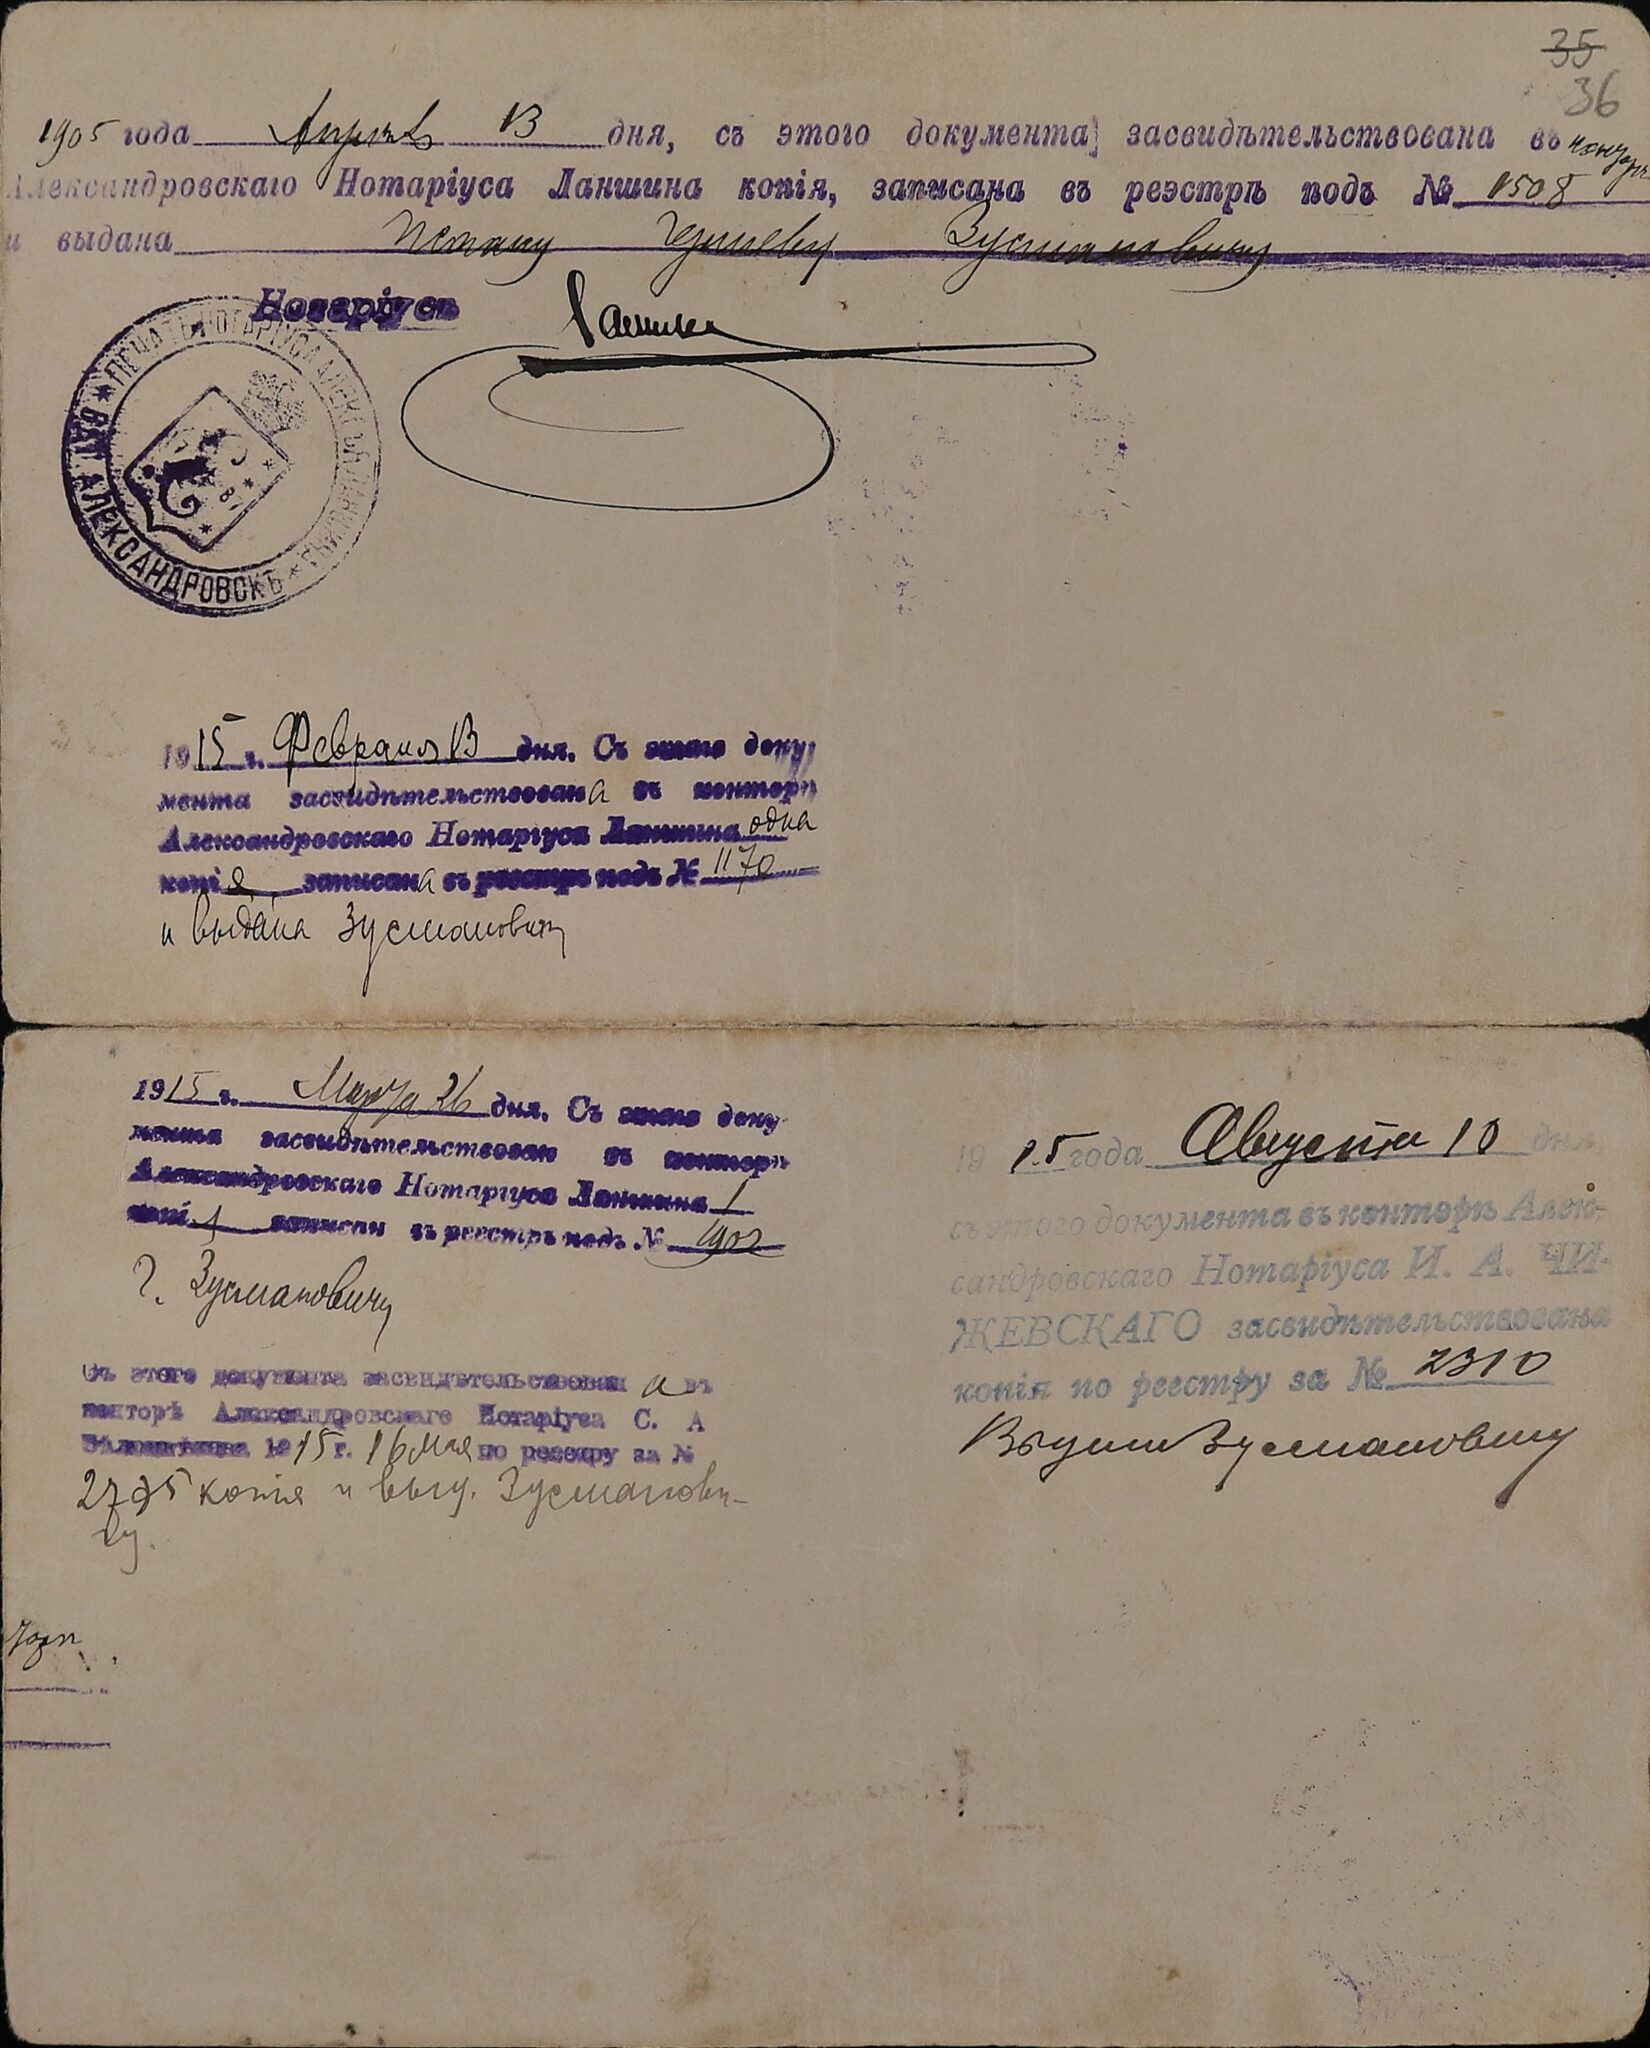 35
36
1905 года Апреля 13 дня, съ этого документа засвидѣтельствована въ конторѣ
Александровскаго Нотаріуса Ланшина копія, записана въ реэстрѣ подъ № 1508
и выдана Зусмановичу
Нотаріусъ Ланшинъ
ПЕЧАТЬ НОТАРІУСА
ЕКАТ. АЛЕКСАНДРОВСКЪ
1915 г. Февраля 13 дня. Съ этаго доку
мента засвидѣтельствована въ конторѣ
Александровскаго Нотаріуса Ланшина одна
копія записана въ реестрѣ подъ № 1170
и выдана Зусмановичу
1915 г. Марта 26 дня. Съ этаго доку
мента засвидѣтельствован въ конторѣ
Александровскаго Нотаріуса Ланшина 1
копія записан въ реестрѣ подъ № 1902
Г. Зусмановичу
Съ этого документа засвидѣтельствована въ
конторѣ Александровскаго Нотаріуса С. А
1915 г. 16 Мая по реестру за №
копія и выд. Зусманови-
чу.
1915 года Августа 10 дня,
съ этого документа въ конторѣ Алек-
сандровскаго Нотаріуса И. А. ЧИ-
ЖЕВСКАГО засвидѣтельствована
копія по реестру за № 2310
Выдана Зусмановичу